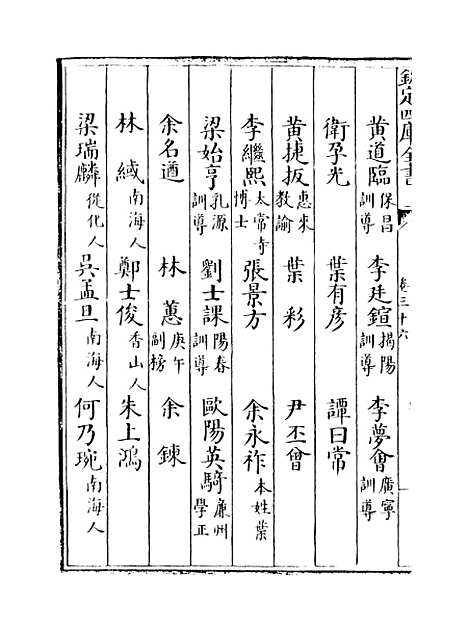 欽定四庫全書
卷三十六
黄道臨保昌訓導 李廷鍹揭陽訓導 李夢會廣寧訓導
衛孕光 葉有彦 譚曰常
黄捷扳惠來教諭 葉彩 尹丕曾
李繼熙太常寺博士 張景方 余永祚本姓葉
梁始亨乳源訓導 劉士課陽春訓導 歐陽英騎亷州學正
余名遒 林蕙庚午副榜 余鍊
林緎南海人 鄭士俊香山人 朱上鴻
梁瑞麟從化人 吳孟旦南海人 何乃琬南海人